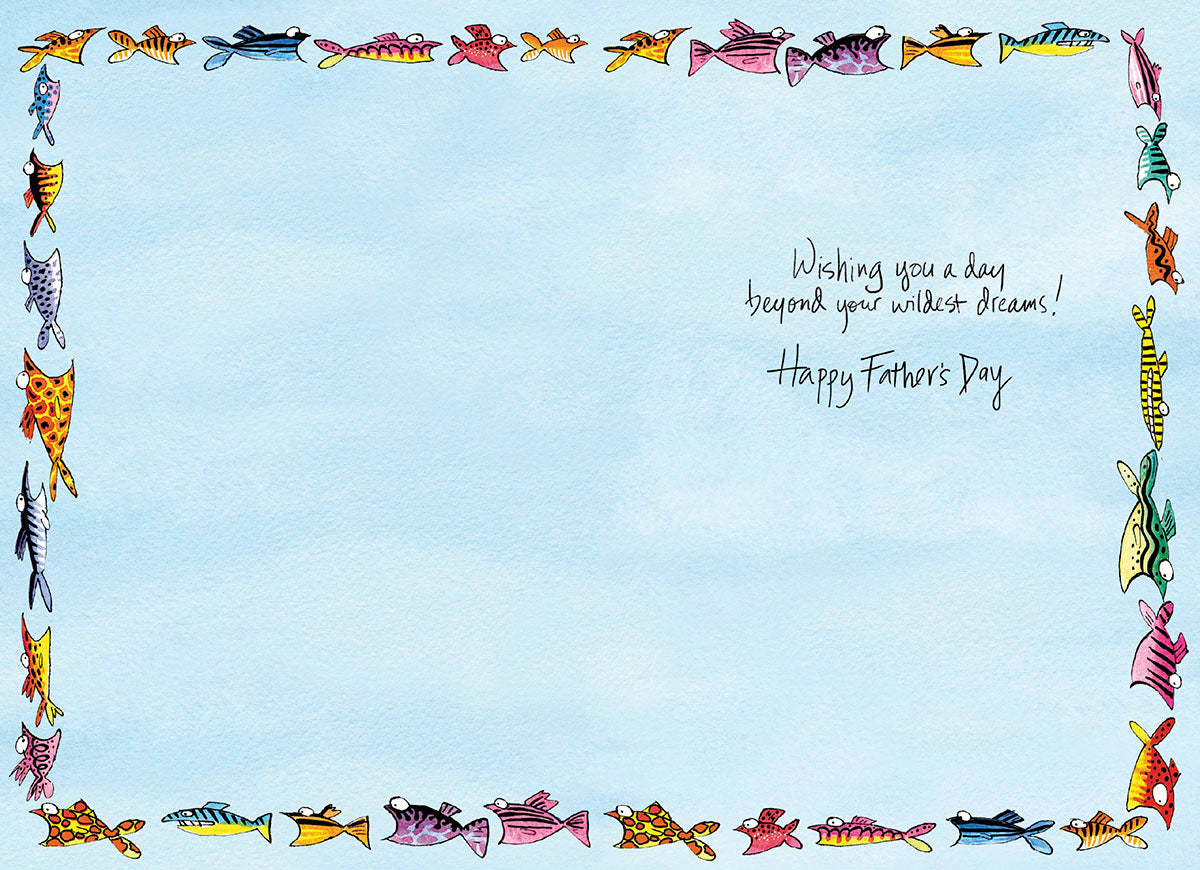 Wishing you a day
beyond your wildest dreams!
Happy Father's Day